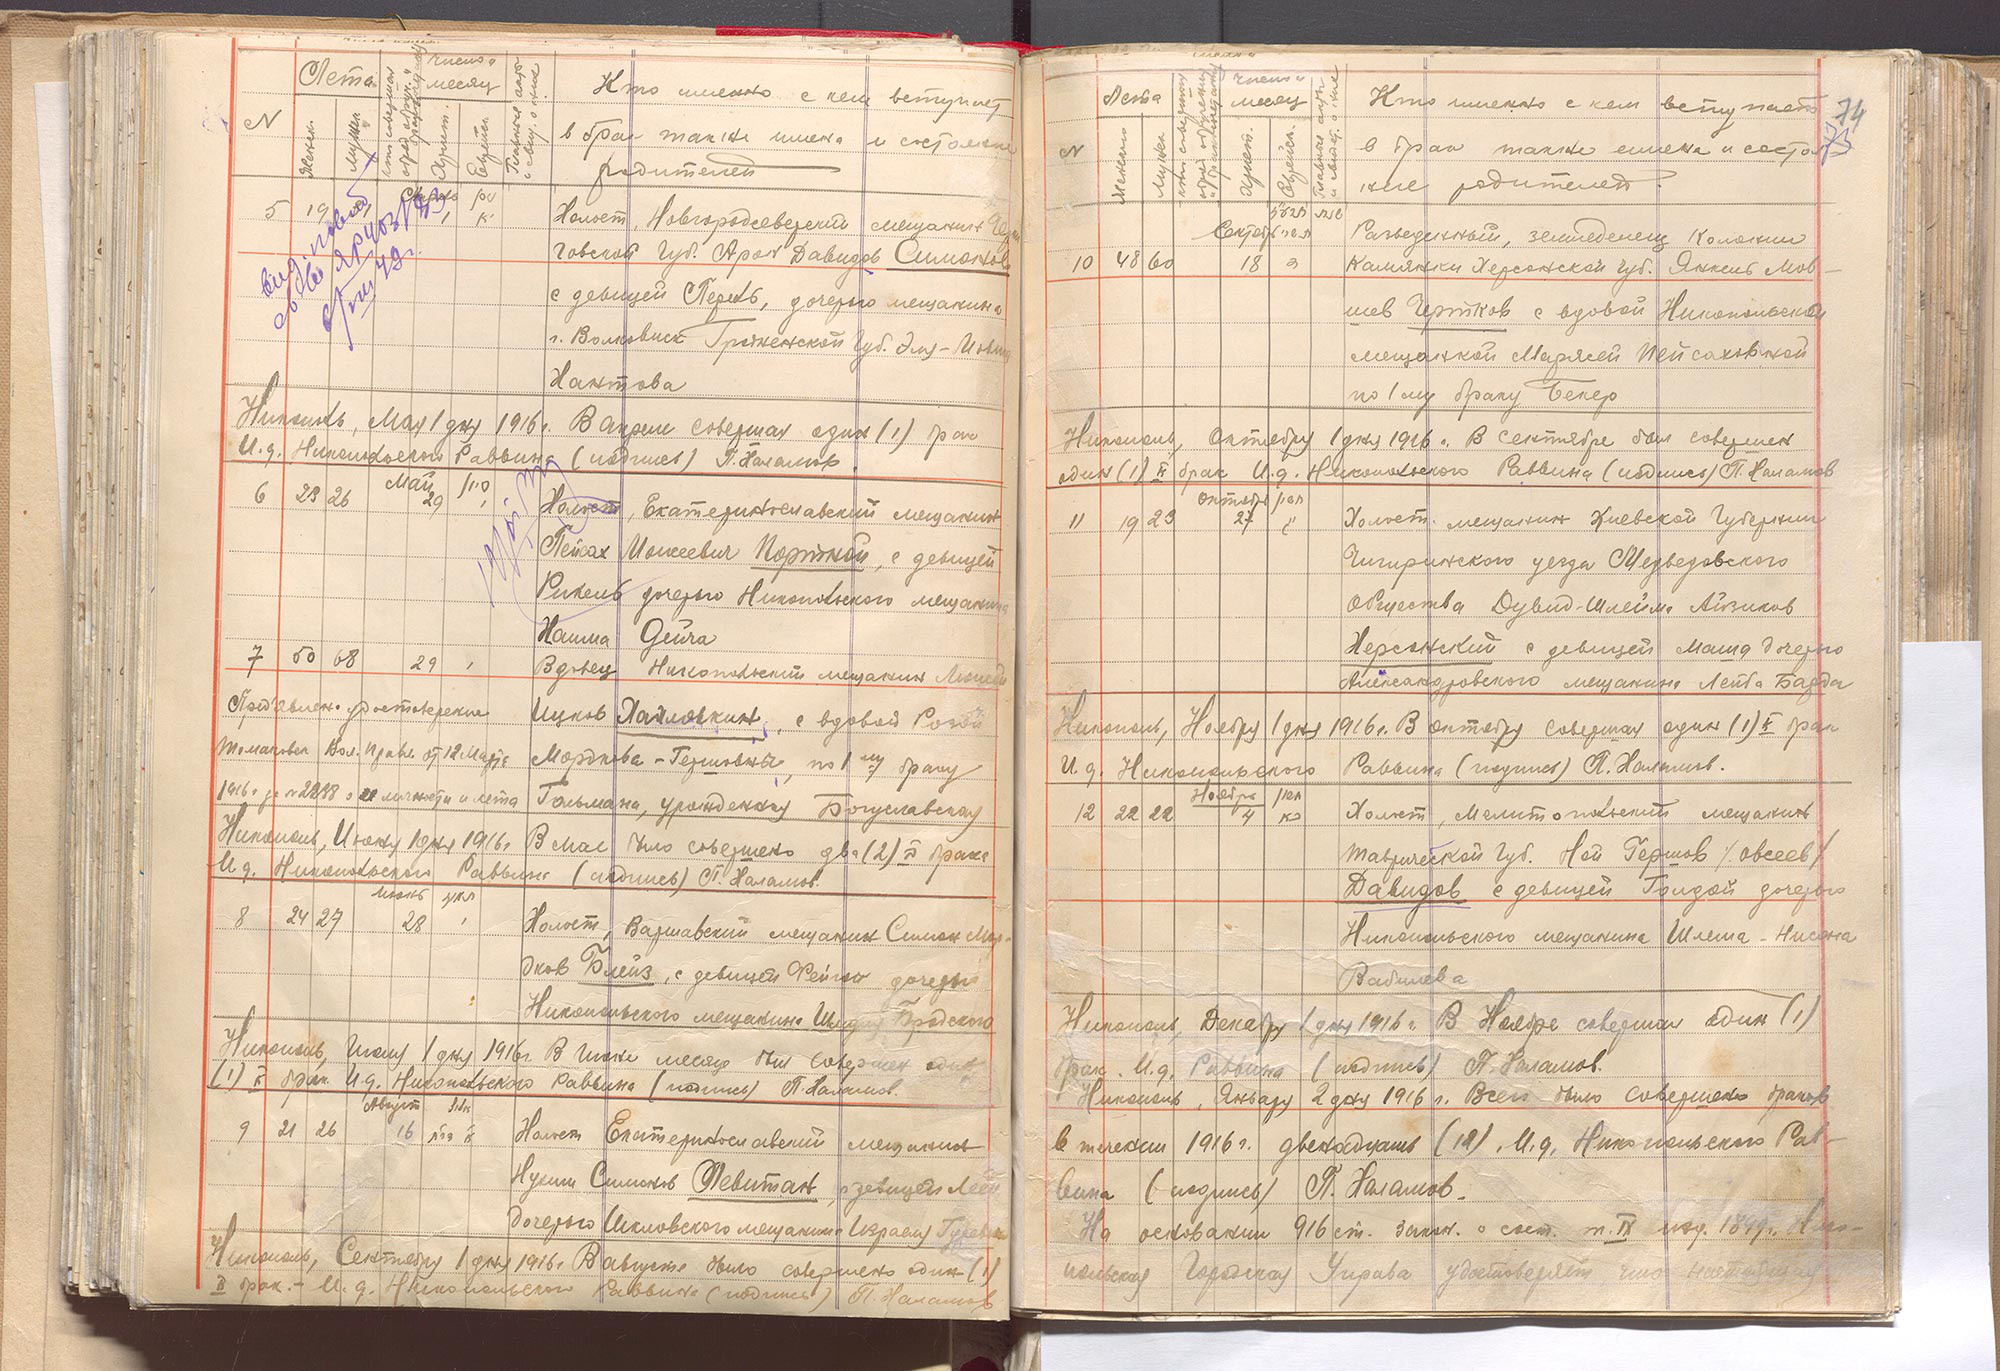 N
Лета
Женск.
Мужск.
Число и
месяц
Христ.
Еврейск.
Кто именно с кем вступает
в брак также имена и состояние
родителей
5 19
Холост, Новгородсеверский мещанин Черни
говской Губ. Арон Давидов Симонов
с девицей Перль, дочерью мещанина
г. Волковиск Гродненской Губ. Эля-Иовна
Хантова
Никополь, Мая 1 дня 1916 г. В апреле совершен один (1) брак
И.д. Никопольского Раввина (подпись) П. Наламов.
Май
6 23 26 29
Холост, Екатеринославский мещанин
Пейсах Моисеевич Портной, с девицей
Рикель дочерью Никопольского мещанина
Хаима Дейча
7 50 68 29
Вдовец Никопольский мещанин
Ицков Хайловкин, с вдовой Розой
Мордкова-Гершовны, по 1му браку
Гольмана, урожденная Богуславская
Пред'явлено удостоверение
Томаковск Вол. Правл. от 12 Марта
1916 г. за № 2288 о личности и лета
Никополь, Июня 1 дня 1916 г. В мае было совершено два (2) брака
И.д. Никопольского Раввина (подпись) П. Наламов.
Июнь
8 24 27 28
Холост, Варшавский мещанин Симон Мор-
дков Блейз, с девицей Фейгой дочерью
Никопольского мещанина Бродского
Никополь, Июля 1 дня 1916 г. В Июне месяце был совершен один
(1) брак. И.д. Никопольского Раввина (подпись) П. Наламов.
Август
9 21 26 16
Холост Екатеринославский мещанин
Нухим Симонов Левитан, с девицей Леей
дочерью Шкловского мещанина Израеля
Никополь, Сентября 1 дня 1916 г. В августе было совершено один (1)
брак. - И.д. Никопольского Раввина (подпись) П. Наламов
74
N
Лета
Женск.
Мужск.
Число и
месяц
Христ.
Еврейск.
Кто именно с кем вступает
в брак также имена и состоя-
ние родителей.
Сентябрь
10 48 60 18
Разведенный, земледелец Колонии
Камянки Херсонской Губ. Янкель Мов-
шев Чертков с вдовой Никопольской
мещанкой Марясей Пейсаховной
по 1му браку Бекер
Никополь, Октября 1 дня 1916 г. В сентябре был совершен
один (1) брак И.д. Никопольского Раввина (подпись) П. Наламов
Октябрь
11 19 23 27
Холост. мещанин Киевской Губернии
Чигиринского уезда Медведовского
Общества Дувид-Шлейма Айзиков
Херсонский с девицей Маша дочерью
Александровского мещанина Лейба Барда
Никополь, Ноября 1 дня 1916 г. В октябре совершен один (1) брак
И.д. Никопольского Раввина (подпись) П. Наламов.
Ноябрь
12 22 22 4
Холост, Мелитопольский мещанин
Таврической Губ. Ной Гершов /Овсеев/
Давидов с девицей Голдой дочерью
Никопольского мещанина Шлема-Нисона
Вабилева
Никополь, Декабря 1 дня 1916 г. В Ноябре совершен один (1)
брак. И.д. Раввина (подпись) П. Наламов.
Никополь, Января 2 дня 1916 г. Всего было совершено браков
в течении 1916 г. двенадцать (12). И.д. Никопольского Рав-
вина (подпись) П. Наламов.
На основании 916 ст. закон. о сост. т. IX изд. 1899 г. Нико-
польская Городская Управа удостоверяет что настоящая